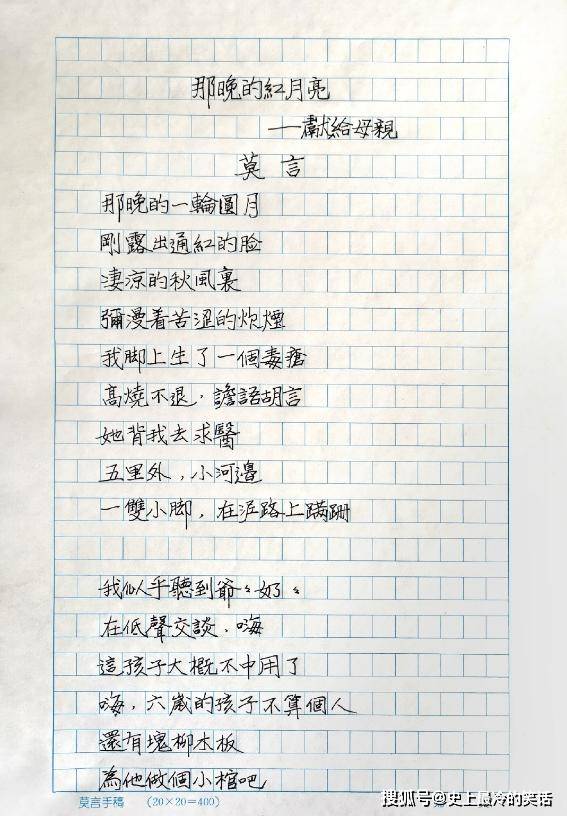 那晚的紅月亮
——獻給母親
莫言
那晚的一輪圓月
剛露出通紅的脸
淒涼的秋風裏
彌漫着苦澀的炊煙
我脚上生了一個毒瘡
高燒不退，譫語胡言
她背我去求醫
五里外，小河邊
一雙小脚，在泥路上蹒跚
我似乎聽到爺々奶々
在低聲交談，嗨
這孩子大概不中用了
嗨，六歲的孩子不算個人
還有塊柳木板
為他做個小棺吧
莫言手稿 (20×20=400)
搜狐号@史上最冷的笑话